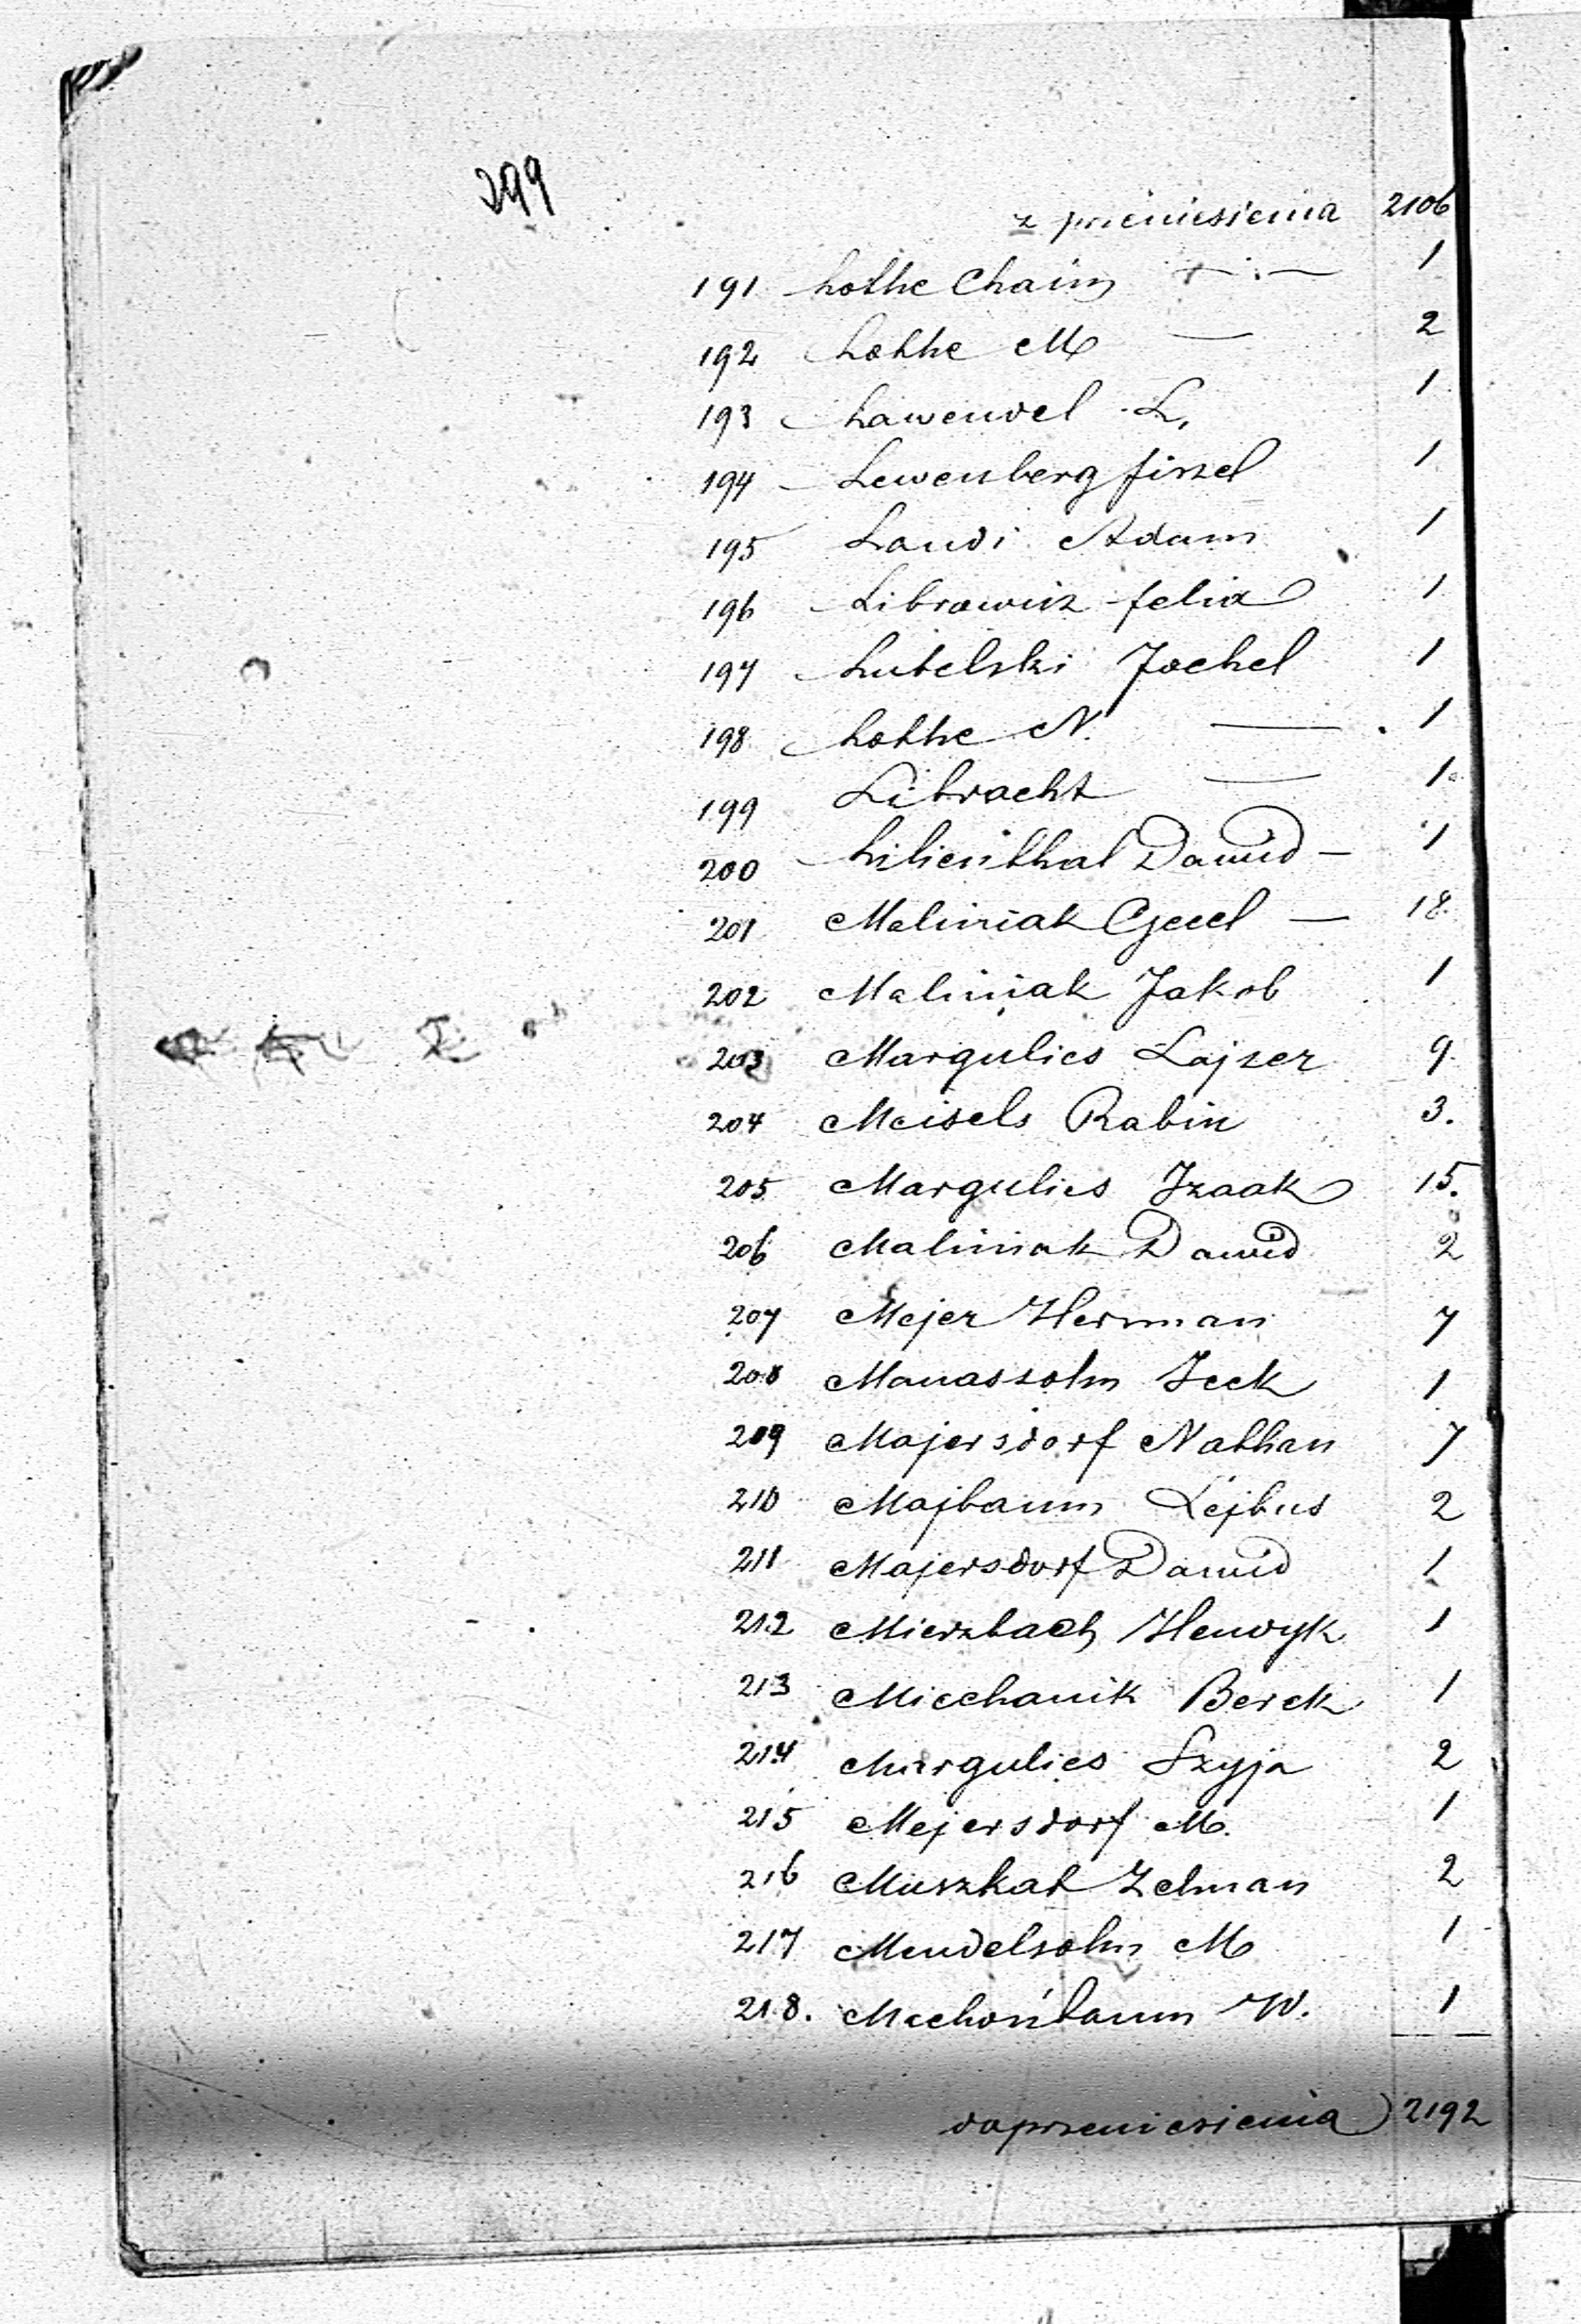 299
z prieniesienia 2106
191 Lothe Chaim — 1
192 Lothe M — 2
193 Lawendel L. 1
194 Lewenberg fiszel 1
195 Landi Adam 1
196 Librowicz felix 1
197 Lubelski Jochel 1
198 Lothe N. — 1
199 Libracht — 1
200 Lilienthal Dawid — 1
201 Maliniak Gecel — 18
202 Maliniak Jakob 1
203 Margulies Lajzer 9
204 Meisels Rabin 3.
205 Margulies Izaak 15.
206 Maliniak Dawid 2
207 Mejer Herman 7
208 Manassohn Icek 1
209 Majersdorf Nathan 7
210 Majbaum Lejbus 2
211 Majersdorf Dawid 1
212 Mierzbach Henryk 1
213 Miechanik Berek 1
214 Margulies Szyja 2
215 Mejersdorf M. 1
216 Muszkat Zelman 2
217 Mendelsohn M 1
218. Mechońbaum W. 1
doprzeniesienia 2192